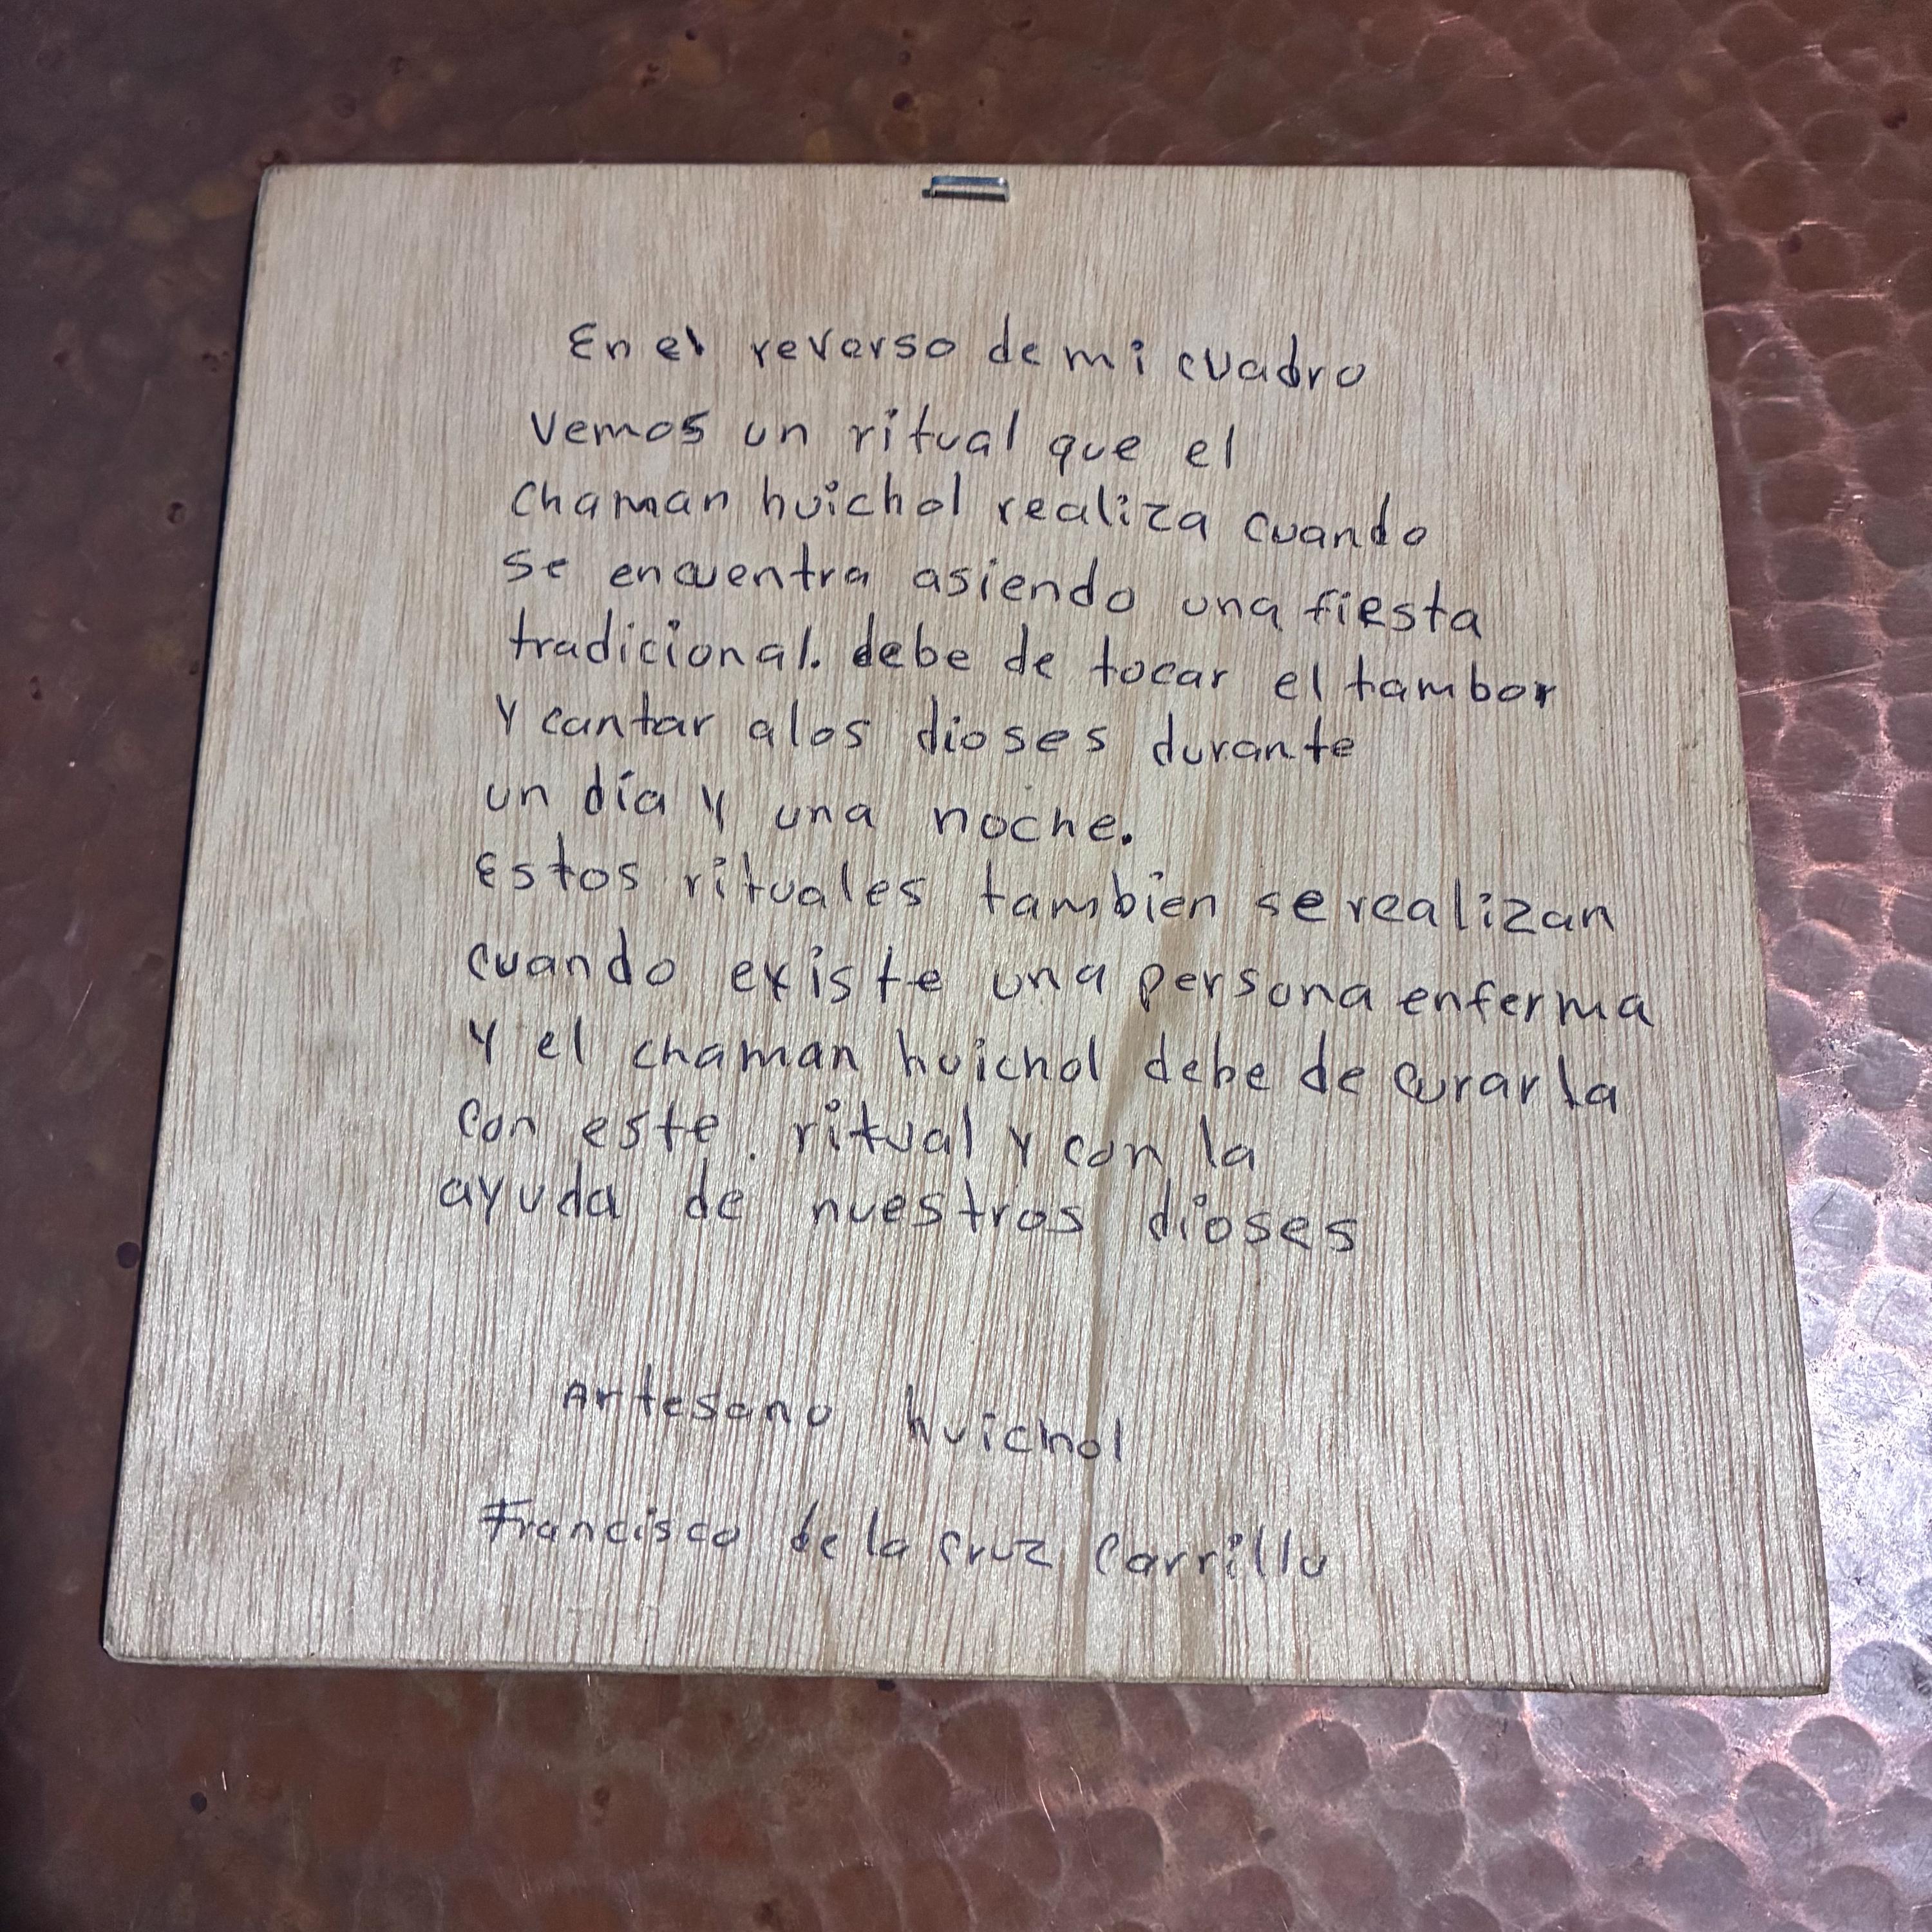 En el reverso de mi cuadro
Vemos un ritual que el
Chaman huichol realiza cuando
se encuentra asiendo una fiesta
tradicional. debe de tocar el tambor
Y cantar alos dioses durante
un día y una noche.
Estos rituales tambien se realizan
cuando existe una persona enferma
Y el chaman huichol debe de curarla
con este. ritual y con la
ayuda de nuestros dioses
Artesano huichol
Francisco de la Cruz Carrillo